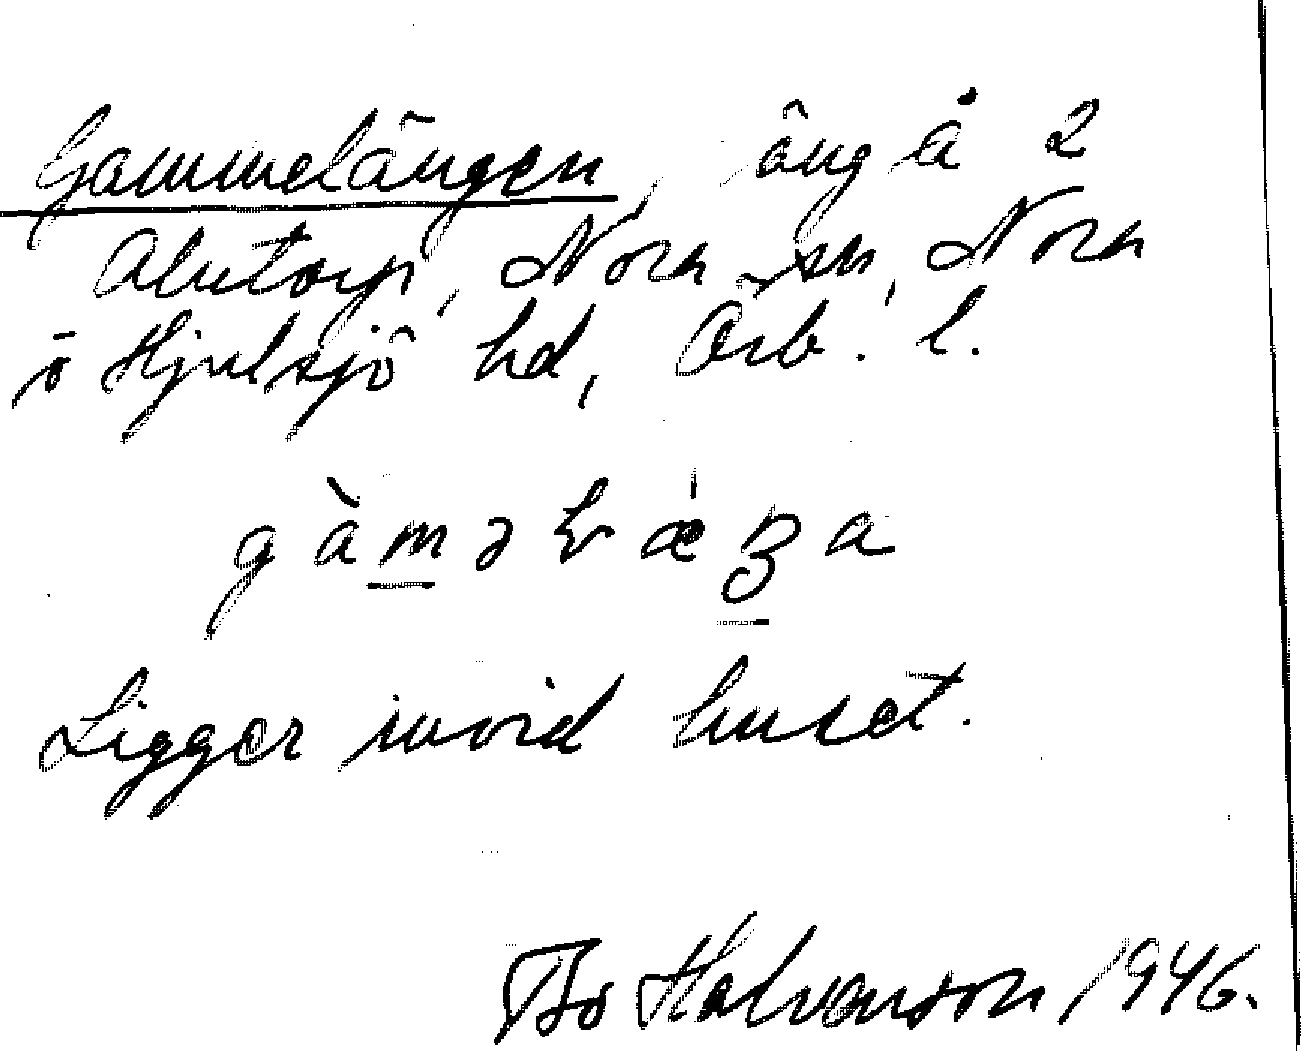 Gammelängen, äng å 2
Alntorp, Nora sn, Nora
o Hjulsjö hd, Örb. l.
Ligger invid huset.
Bo Halvarson 1946.